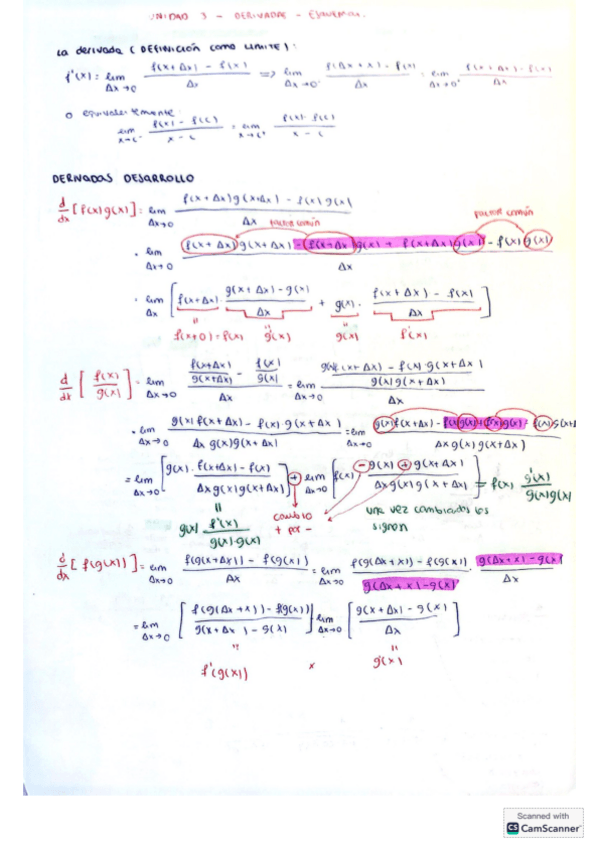 UNIDAD 3 - DERIVADAS - ESQUEMA.
La derivada (DEFINICIÓN COMO LIMITE):
f'(x): lim Δx→0 f(x+Δx) - f(x) / Δx => lim Δx→0⁻ f(Δx+x) - f(x) / Δx = lim Δx→0⁺ f(x+Δx) - f(x) / Δx
o equivalentemente:
lim x→c⁻ f(x) - f(c) / x - c = lim x→c⁺ f(x) - f(c) / x - c
DERIVADAS DESARROLLO
d/dx [f(x)g(x)] = lim Δx→0 f(x+Δx)g(x+Δx) - f(x)g(x) / Δx
factor común factor común
= lim Δx→0 f(x+Δx)g(x+Δx) - f(x+Δx)g(x) + f(x+Δx)g(x) - f(x)g(x) / Δx
= lim Δx [ f(x+Δx) · g(x+Δx) - g(x) / Δx + g(x) · f(x+Δx) - f(x) / Δx ]
f(x+0) = f(x) g'(x) g(x) f'(x)
d/dx [ f(x) / g(x) ] = lim Δx→0 f(x+Δx)/g(x+Δx) - f(x)/g(x) / Δx = lim Δx→0 g(x)f(x+Δx) - f(x)g(x+Δx) / g(x)g(x+Δx) / Δx
= lim Δx→0 g(x)f(x+Δx) - f(x)g(x+Δx) / Δx g(x)g(x+Δx) = lim Δx→0 g(x)f(x+Δx) - f(x)g(x) + f(x)g(x) - f(x)g(x+ / Δx g(x)g(x+Δx)
= lim Δx→0 [ g(x) · f(x+Δx) - f(x) / Δx g(x)g(x+Δx) ] + lim Δx→0 [ f(x) - g(x) + g(x+Δx) / Δx g(x)g(x+Δx) ] = f(x) g'(x) / g(x)g(x)
g(x) f'(x) / g(x)·g(x)
cambio + por -
una vez cambiados los signos
d/dx [f(g(x))] = lim Δx→0 f(g(x+Δx)) - f(g(x)) / Δx = lim Δx→0 f(g(Δx+x)) - f(g(x)) / g(Δx+x) - g(x) · g(Δx+x) - g(x) / Δx
= lim Δx→0 [ f(g(Δx+x)) - f(g(x)) / g(x+Δx) - g(x) ] lim Δx→0 [ g(x+Δx) - g(x) / Δx ]
f'(g(x)) × g'(x)
Scanned with
CS CamScanner